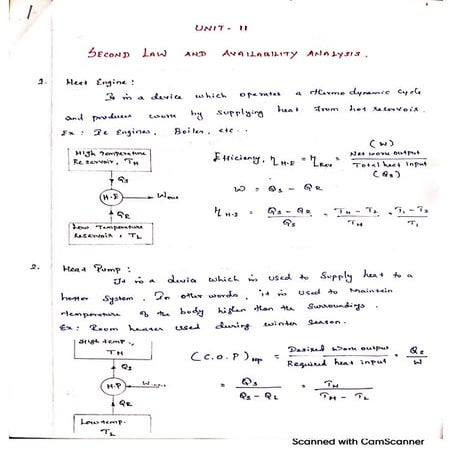 1
UNIT - II
SECOND LAW AND AVAILABILITY ANALYSIS.
1. Heat Engine :
It is a device which operates a thermodynamic cycle
and produces work by supplying heat from hot reservoir.
Ex : IC Engines, Boiler, etc..
High Temperature
Reservoir, TH
Qs
H.E
Wout
QR
Low Temperature
Reservoir, TL
Efficiency, ηH.E = ηRev = (W) Net work output / Total heat input (Qs)
W = Qs - QR
= Qs - QR / Qs = TH - TL / TH = T1 - T2 / T1
2. Heat Pump :
It is a device which is used to supply heat to a
hotter system. In other words, it is used to Maintain
temperature of the body higher than the surroundings.
Ex: Room heater used during winter season.
High temp.,
TH
Qs
H.P
W
QR
Low temp.
TL
(C.O.P)HP = Desired work output / Required heat input = / W
= Qs / Qs - QL = TH / TH - TL
Scanned with CamScanner